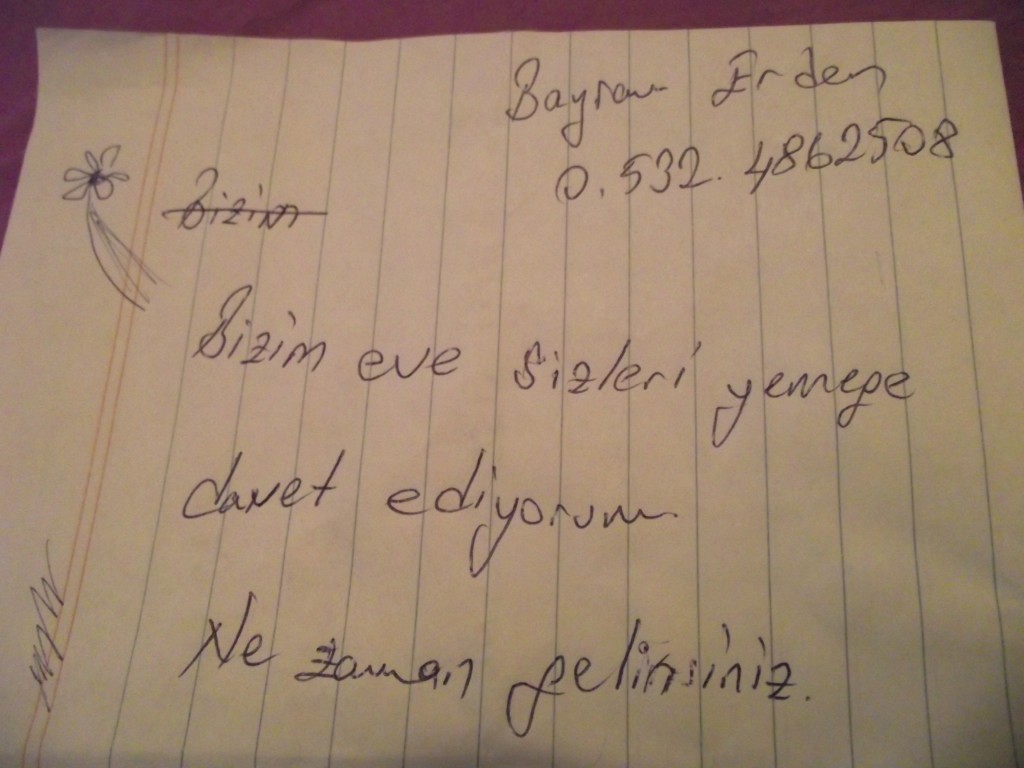 Bayram Erdem
0.532.4862508
Bizim
Bizim eve sizleri yemege
davet ediyorum
Ne zaman gelirsiniz.